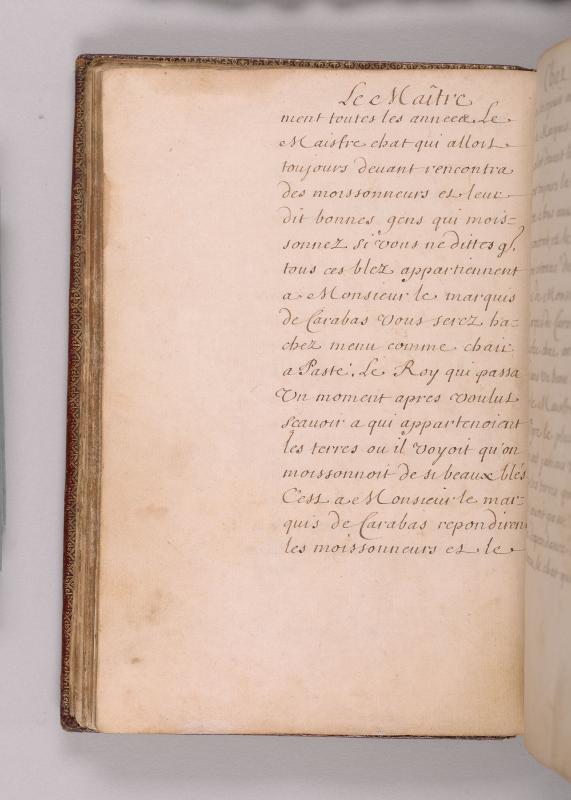 Le Maître
ment toutes les anneeé Le
Maistre chat qui alloit
toujours devant rencontra
des moissonneurs et leur
dit bonnes gens qui mois=
sonnez si vous ne dittes q̃.
tous ces blez appartiennent
a Monsieur le marquis
de Carabas vous serez ha=
chez menu comme chair
a Pasté, Le Roy qui passa
Un moment apres voulut
scavoir a qui appartenoient
les terres ou il voyoit qu'on
moissonnoit de si beaux blés
C'est a Monsieur le mar=
quis de Carabas repondiren
les moissonneurs et le